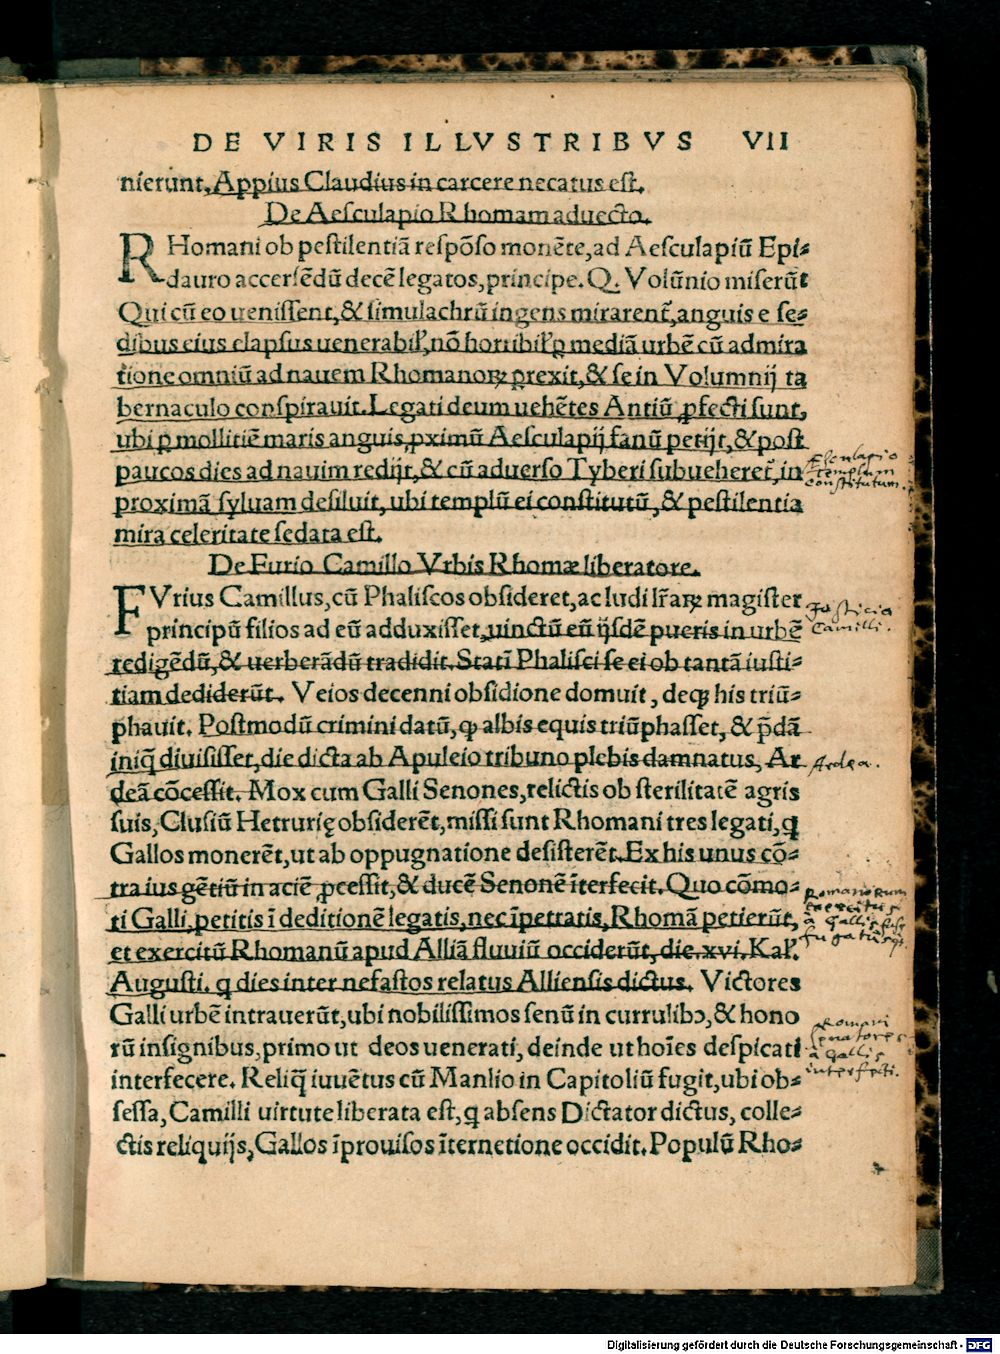 DE VIRIS ILLVSTRIBVS VII
nierunt, Appius Claudius in carcere necatus est.
De Aesculapio Rhomam aduecto.
RHomani ob pestilentiã respõso monẽte, ad Aesculapiũ Epi-
dauro accersẽdũ decẽ legatos, principe. Q. Volũnio miserũt
Qui cũ eo uenissent, & simulachrũ ingens mirarent᷑, anguis e se-
dibus eius elapsus uenerabil', nõ horribil' ꝑ mediã urbẽ cũ admira
tione omniũ ad nauem Rhomanoꝝ ꝑrexit, & se in Volumnij ta
bernaculo conspirauit. Legati deum uehẽtes Antiũ ꝓfecti sunt,
ubi ꝑ mollitiẽ maris anguis ꝓximũ Aesculapij fanũ petijt, & post
paucos dies ad nauim redijt, & cũ aduerso Tyberi subueheret᷑, in
proximã syluam desiluit, ubi templũ ei constitutũ, & pestilentia
mira celeritate sedata est.
De Furio Camillo Vrbis Rhomæ liberatore.
FVrius Camillus, cũ Phaliscos obsideret, ac ludi lr̃aꝝ magister
principũ filios ad eũ adduxisset, uinctũ eũ ijsdẽ pueris in urbẽ
redigẽdũ, & uerberãdũ tradidit. Statĩ Phalisci se ei ob tantã iusti-
tiam dediderũt. Veios decenni obsidione domuit, deqꝫ his triũ-
phauit. Postmodũ crimini datũ, ꝙ albis equis triũphasset, & p̃dã
iniq̃ diuisisset, die dicta ab Apuleio tribuno plebis damnatus, Ar
deã cõcessit. Mox cum Galli Senones, relictis ob sterilitatẽ agris
suis, Clusiũ Hetrurię obsiderẽt, missi sunt Rhomani tres legati, q̃
Gallos monerẽt, ut ab oppugnatione desisterẽt. Ex his unus cõ-
tra ius gẽtiũ in aciẽ ꝓcessit, & ducẽ Senonẽ ĩterfecit. Quo cõmo-
ti Galli, petitis ĩ deditionẽ legatis, nec ĩpetratis, Rhomã petierũt,
et exercitũ Rhomanũ apud Alliã fluuiũ occiderũt, die. xvi. Kal'.
Augusti. q̃ dies inter nefastos relatus Alliensis dictus. Victores
Galli urbẽ intrauerũt, ubi nobilissimos senũ in currulibꝰ, & hono
rũ insignibus, primo ut deos uenerati, deinde ut hoĩes despicati
interfecere. Reliq̃ iuuẽtus cũ Manlio in Capitoliũ fugit, ubi ob-
sessa, Camilli uirtute liberata est, q̃ absens Dictator dictus, colle-
ctis reliquijs, Gallos ĩprouisos ĩternetione occidit. Populũ Rho-
Esculapio
templum
constitutum.
Justicia
Camilli.
Ardea.
Romanorum
exercitus
a Gallis
Romani
senatores
a Gallis
interfecti.
Digitalisierung gefördert durch die Deutsche Forschungsgemeinschaft - DFG